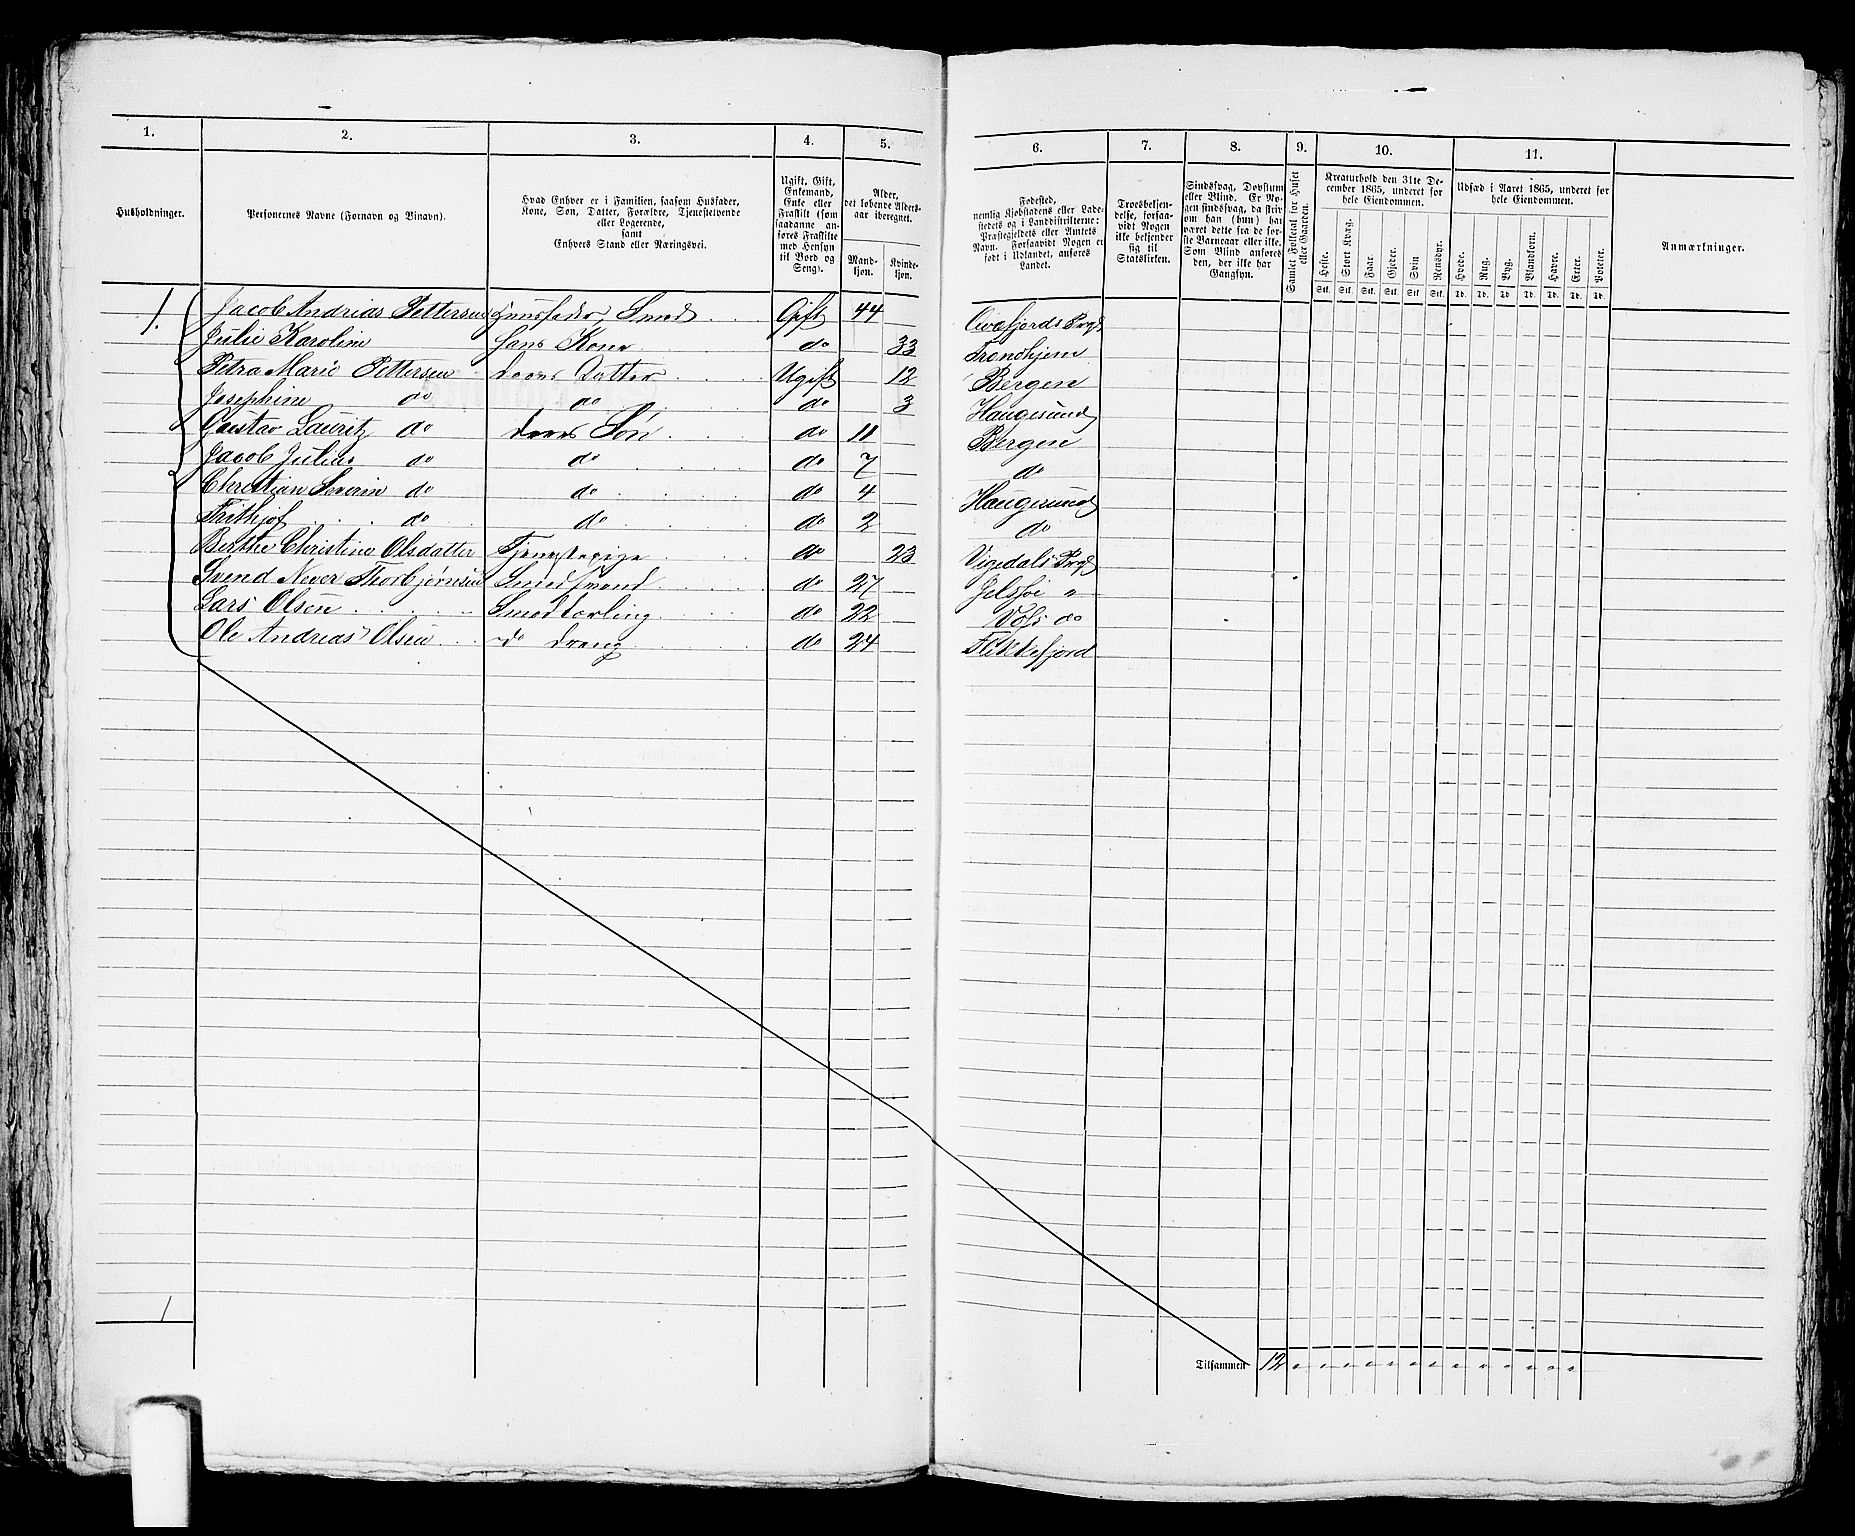 1. 2. 3. 4. 5. 6. 7. 8. 9. 10. 11.
Husholdninger.
Personernes Navne (Fornavn og Vinavn).
Hvad Enhver er i Familien, saasom Husfader,
Kone, Søn, Datter, Forældre, Tjenestetyende
eller Logerende,
samt
Enhvers Stand eller Næringsvei.
Ugift, Gift,
Enkemand,
Enke eller
Fraskilt (som
saadanne an-
føres Fraskilte
med Hensyn
til Bord og
Seng).
Alder,
det løbende Alders-
aar iberegnet.
Mand-
kjøn.
Kvinde-
kjøn.
Fødested,
nemlig Kjøbstadens eller Lade-
stedets og i Landdistrikterne:
Præstegjeldets eller Amtets
Navn. Forsaavidt Nogen er
født i Udlandet, anføres
Landet.
Troesbekjen-
delse, forsaa-
vidt Nogen
ikke bekjender
sig til
Statskirken.
Sindssvag, Døvstum
eller Blind. Er No-
gen sindssvag, da skriv
om han (hun) har
været dette fra de før-
ste Barneaar eller ikke.
Som Blind anføres
den, der ikke har
Gangsyn.
Samlet Folketal for Huset
eller Gaarden.
Kreaturhold den 31te De-
cember 1865, underet for
hele Eiendommen.
Heste. Stort Kvæg. Faar. Gjeder. Svin Rensdyr.
Stk. Stk. Stk. Stk. Stk. Stk.
Udsæd i Aaret 1865, underet for
hele Eiendommen.
Hvede. Rug. Byg. Blandkorn. Havre. Erter. Poteter.
Td. Td. Td. Td. Td. Td. Td.
Anmærkninger.
1. Jacob Andreas Pettersen Huusfader Smed Gift 44 Prgd
Julie Karoline Hans Kone do 33 Trondhjem
Petra Marie Pettersen deres Datter Ugift 12 Bergen
Josephine do do do 3 Haugesund
Gustav Lauritz do deres Søn do 11 Bergen
Jacob Julius do do do 7 do
Christian Severin do do do 4 Haugesund
Frithjof do do do 2 do
Berthe Christine Olsdatter Tjenestepige do 23 Vigedals Prgd
Svend Never Thorbjørnsen Smedsvend do 27 Jelsøe "
Lars Olsen Smedlærling do 22 do
Ole Andreas Olsen do dreng do 24 Flekkefjord
1
Tilsammen 12 " " " " " " " " " " " " "